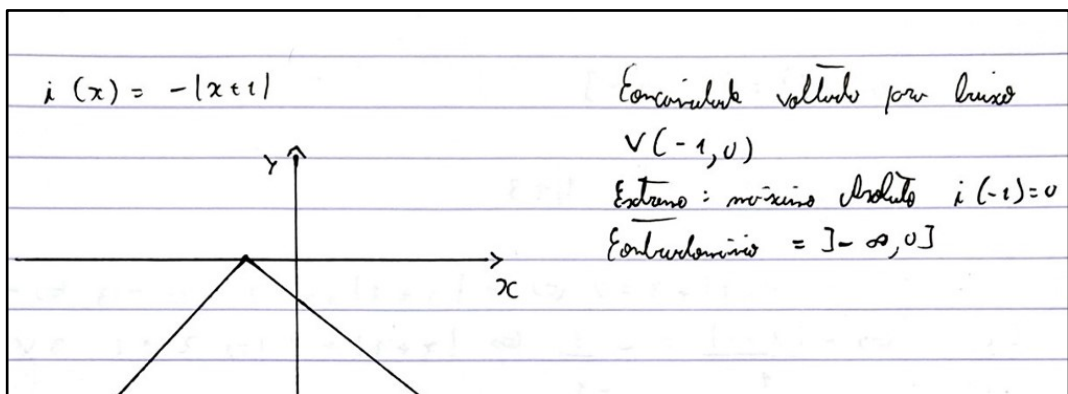 i (x) = -|x+1|
Concavidade voltada para baixo
V(-1,0)
Extremo: máximo absoluto i(-1)=0
Contradomínio = ]-∞,0]
y
x